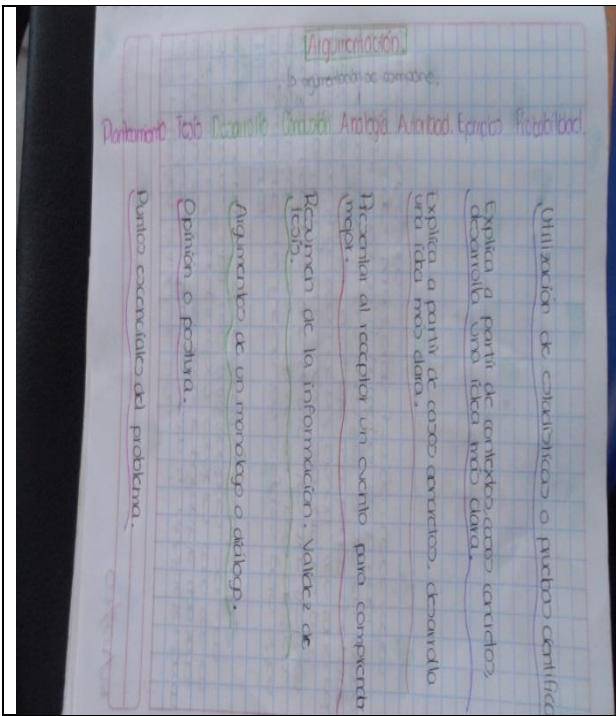 Argumentación.
la argumentación se compone.
Planteamiento Tesis Desarrollo Conclusión Analogía Autoridad. Ejemplos Probabilidad.
Puntos escenciales del problema.
Opinión o postura.
Argumentos de un monologo o diálogo.
Resumen de la información. Validez de
tesis.
Presentar al receptor un evento para comprender
mejor.
Explica a partir de casos concretos, desarrolla
una idea mas clara.
Explica a partir de contextos, casos concretos
desarrolla una idea mas clara.
Utilización de estadísticas o pruebas científica